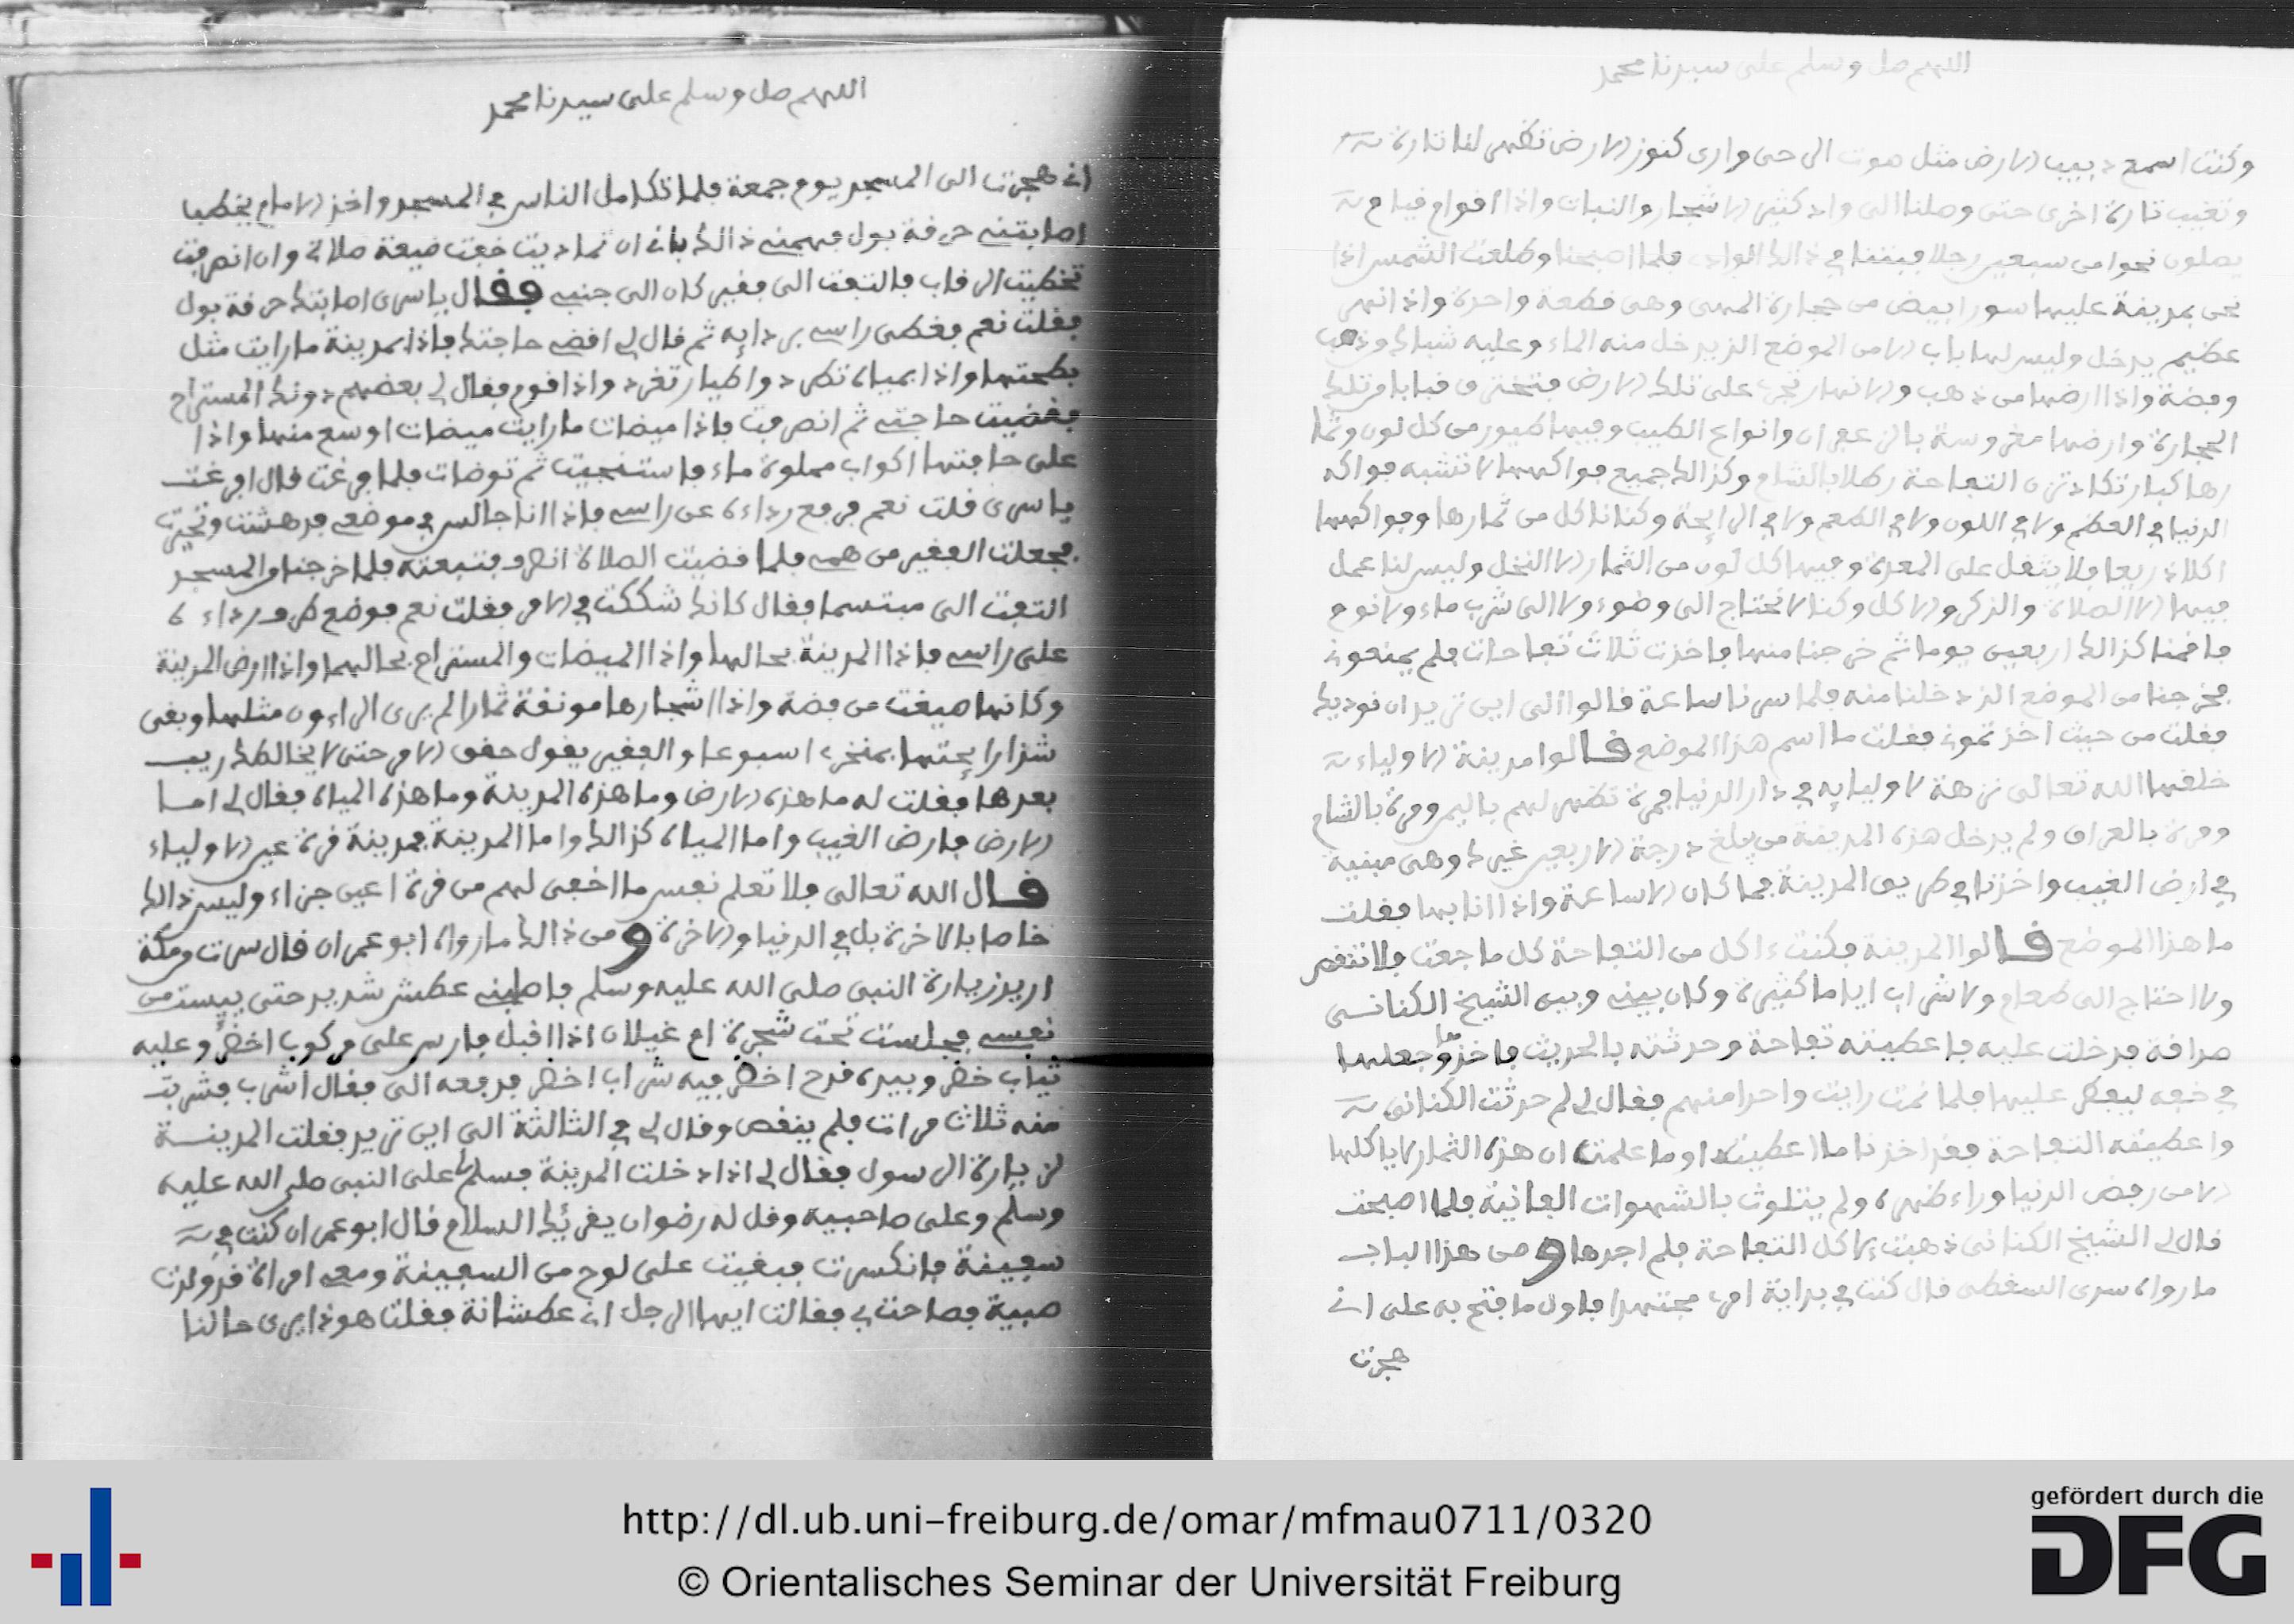 اللهم صل وسلم على سيدنا محمد
وكنت اسمع دبيب الارض مثل صوت الرحى وارى كنوز الارض تظهر لنا تارة
وتغيب تارة اخرى حتى وصلنا الى واد كثير الاشجار والنبات واذا اقوام قيام
يصلون نحوا من سبعين رجلا فبتنا في ذالك الوادي فلما اصبحنا وطلعت الشمس اذا
نحن بمدينة عليها سور ابيض من حجارة المهى وهى قطعة واحدة واذا نهر
عظيم يدخل وليس لها باب الا من الموضع الذي دخل منه الماء وعليه شباك وذهب
وفضة واذا ارضها من ذهب والانهار تجري على تلك الارض فتخترق قبابا وتلك
الحجارة وارضها مغروسة بالزعفران وانواع الطيب وفيها طيور من كل لون وثما
رها كبار تكاد تزن التفاحة رطلا بالشام وكذالك جميع فواكهها لا تشبه فواكه
الدنيا في العظم ولا في اللون ولا في الطعم ولا في الرايحة وكنا ناكل من ثمارها وفواكهها
اكلا ذريعا فلا يثقل على المعدة وفيها كل لون من الثمار الا النخل وليس لنا عمل
فيها الا الصلاة والذكر والاكل وكنا لا نحتاج الى وضوء ولا الى شرب ماء ولا نوم
فاقمنا كذالك اربعين يوما ثم خرجنا منها فاخذت ثلاث تفاحات فلم يمنعوني
فخرجنا من الموضع الذي دخلنا منه فلما سرنا ساعة قالوا الى اين تريد ان نوديك
فقلت من حيث اخذتموني فقلت ما اسم هذا الموضع قالوا مدينة الاولياء
خلقها الله تعالى نزهة لاوليايه في دار الدنيا فمرة تظهر لهم باليمن ومرة بالشام
ومرة بالعراق ولم يدخل هذه المدينة من يبلغ درجة الاربعين غيرك وهى مبنية
في ارض الغيب واخذنا في طريق المدينة فما كان الا ساعة واذا انا بها فقلت
ما هذا الموضع قالوا المدينة فكنت ءاكل من التفاحة كل ما جعت فلا تنقص
ولا احتاج الى طعام ولا شراب اياما كثيرة وكان بيني وبين الشيخ الكتاني
صداقة فدخلت عليه فاعطيته تفاحة وحدثته بالحديث فاخذها وجعلها
في خفه ليفطر عليها فلما نمت رايت واحدا منهم فقال لي لم حدثت الكتاني
واعطيته التفاحة فقد اخذنا ما اعطيته اوما علمت ان هذه الثمار لا ياكلها
الا من رفض الدنيا وراء ظهره ولم يتلوث بالشهوات الفانية فلما اصبحت
قال لي الشيخ الكتاني ذهبت لاكل التفاحة فلم اجدها ومن هذا الباب
ما رواه سرى السقطي قال كنت في بداية امري مجتهدا فاول ما فتح به على اني
هجرت
اللهم صل وسلم على سيدنا محمد
اني هجرت الى المسجد يوم جمعة فلما تكامل الناس في المسجد واخذ الامام يخطب
اصابتني حرقة بول فهممني ذالك باني ان تماديت خفت ضيعة صلاتي وان انصرفت
تخطيت الرقاب فالتفت الى فقير كان الى جنبي فقال ياسرى اصابتك حرقة بول
فقلت نعم فغطى راسي بردايه ثم قال لي اقض حاجتك فاذا بمدينة ما رايت مثل
بطحتها واذا بمياه تطرد واطيار تغرد واذا قوم فقال لي بعضهم دونك المستراح
فقضيت حاجتي ثم انصرفت فاذا ميضات ما رايت ميضات اوسع منها واذا
على حافتها اكواب مملوة ماء فاستنجيت ثم توضات فلما فرغت قال افرغت
ياسرى قلت نعم فرفع رداءه عن راسي فاذا انا جالس في موضعي فدهشت وتحيرت
فجعلت الفقير من همي فلما قضيت الصلاة انصرف فتبعته فلما خرجنا من المسجد
التفت الى مبتسما فقال كانك شككت في الامر فقلت نعم فوضع طرف رداءه
على راسي فاذا المدينة بحالها واذا الميضات والمستراح بحالهما واذا ارض المدينة
وكانها صيغت من فضة واذا اشجارها مونقة ثمارا لم يرى الراءون مثلها وبقى
شذا رايحتها بمنخري اسبوعا والفقير يقول حقق الامر حتى لا يخالطك ريب
بعدها فقلت له ما هذه الارض وما هذه المدينة وما هذه المياه فقال لي اما
الارض فارض الغيب واما المياه كذالك واما المدينة فمدينة قرة عين الاولياء
قال الله تعالى فلا تعلم نفس ما اخفى لهم من قرة اعين جزاء وليس ذالك
خاصا بالاخرة بل في الدنيا والاخرة ومن ذالك ما رواه ابو عمران قال سرت من مكة
اريد زيارة النبى صلى الله عليه وسلم فاصابني عطش شديد حتى ييست من
نفسي فجلست تحت شجرة ام غيلان اذا اقبل فارس على مركوب اخضر وعليه
ثياب خضر وبيده قدح اخضر فيه شراب اخضر فدفعه الى فقال اشرب فشربت
منه ثلاث مرات فلم ينقص وقال لي في الثالثة الى اين تريد فقلت المدينة
لزيارة الرسول فقال لي اذا دخلت المدينة فسلم لي على النبى صلى الله عليه
وسلم وعلى صاحبيه وقل له رضوان يقريك السلام قال ابو عمران كنت في
سفينة فانكسرت فبقيت على لوح من السفينة ومعي امراة قد ولدت
صبية فصاحت بي فقالت ايها الرجل اني عطشانة فقلت هو ذا يرى حالنا
http://dl.ub.uni-freiburg.de/omar/mfmau0711/0320
© Orientalisches Seminar der Universität Freiburg
gefördert durch die
DFG